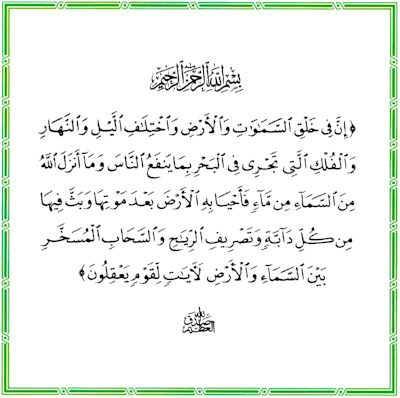 بِسْمِ ٱللَّهِ ٱلرَّحْمَٰنِ ٱلرَّحِيمِ
﴿إِنَّ فِى خَلْقِ ٱلسَّمَٰوَٰتِ وَٱلْأَرْضِ وَٱخْتِلَٰفِ ٱلَّيْلِ وَٱلنَّهَارِ
وَٱلْفُلْكِ ٱلَّتِى تَجْرِى فِى ٱلْبَحْرِ بِمَا يَنفَعُ ٱلنَّاسَ وَمَآ أَنزَلَ ٱللَّهُ
مِنَ ٱلسَّمَآءِ مِن مَّآءٍ فَأَحْيَا بِهِ ٱلْأَرْضَ بَعْدَ مَوْتِهَا وَبَثَّ فِيهَا
مِن كُلِّ دَآبَّةٍ وَتَصْرِيفِ ٱلرِّيَٰحِ وَٱلسَّحَابِ ٱلْمُسَخَّرِ
بَيْنَ ٱلسَّمَآءِ وَٱلْأَرْضِ لَءَايَٰتٍ لِّقَوْمٍ يَعْقِلُونَ﴾
صدق الله العظيم